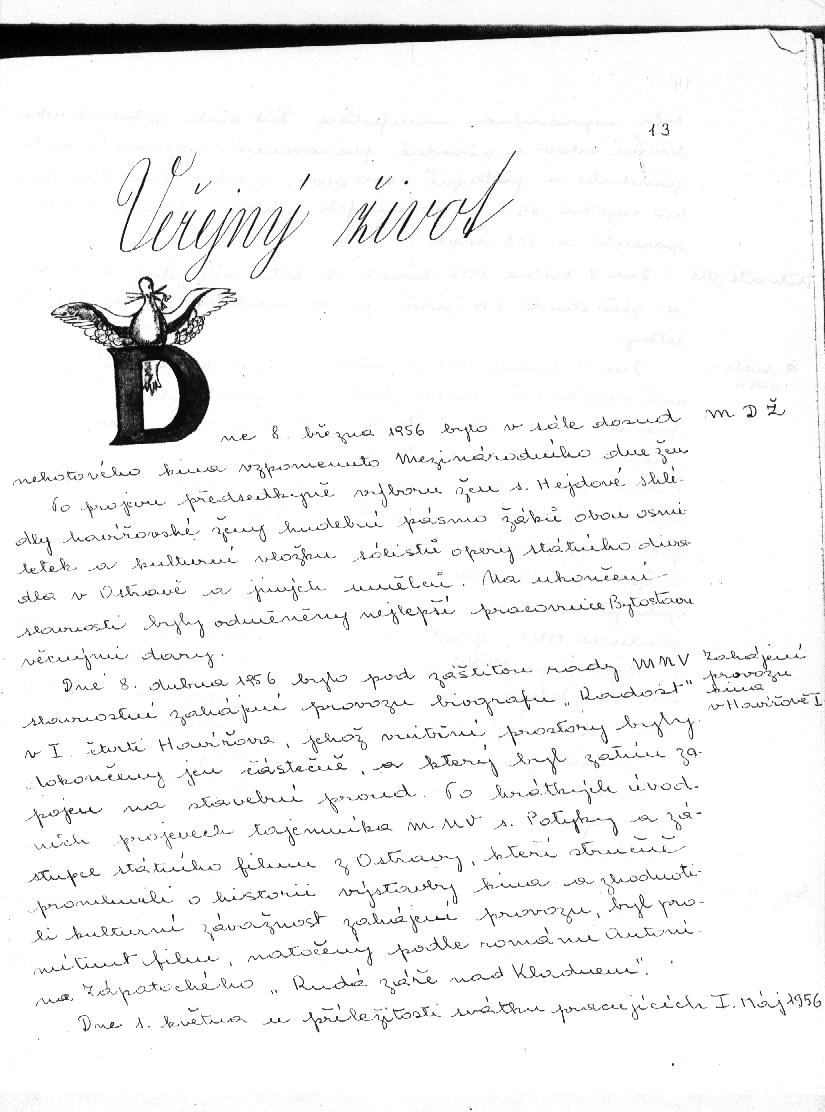 13
Veřejný život
Dne 8. března 1956 bylo v sále dosud
M D Ž
nehotového kina vzpomenuto Mezinárodního dne žen
Po projevu předsedkyně výboru žen s. Hejdové shlé-
dly havířovské ženy hudební pásmo žáků obou osmi-
letek a kulturní vložku sólistů opery státního diva-
dla v Ostravě a jiných umělců. Na ukončení
slavnosti byly odměněny nejlepší pracovnice Bytostavu
věcnými dary.
Dne 8. dubna 1956 bylo pod záštitou rady MNV
Zahájení
provozu
kina
v Havířově I
slavnostní zahájení provozu biografu „Radost"
v I. čtvrti Havířova, jehož vnitřní prostory byly
dokončeny jen částečně, a který byl zatím za-
pojen na stavební proud. Po krátkých úvod-
ních projevech tajemníka MNV s. Potyky a zá-
stupce státního filmu z Ostravy, kteří stručně
promluvili o historii výstavby kina a zhodnoti-
li kulturní závažnost zahájení provozu, byl pro-
mítnut film, natočený podle románu Antoní-
na Zápotockého „Rudá záře nad Kladnem".
Dne 1. května u příležitosti svátku pracujících
I. Máj 1956